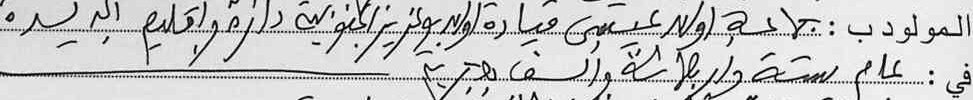 المولود ب: جماعة اولاد عيسى قيادة اولاد بوعزيز الجنوبية دائرة واقليم الجديدة
في: عام ستة واربعمائة والف هجرية